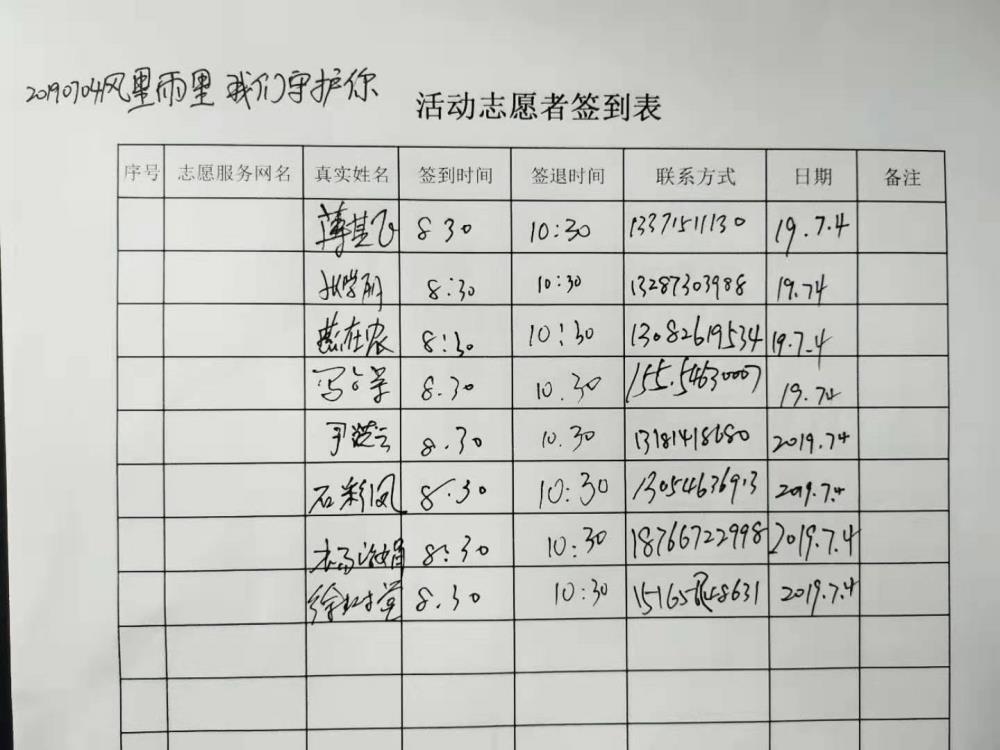 20190704风里雨里 我们守护你
活动志愿者签到表
序号 志愿服务网名 真实姓名 签到时间 签退时间 联系方式 日期 备注
薄其飞 8 30 10:30 13371511130 19.7.4
8:30 10:30 13287303988 19.74
燕在农 8:30 10:30 13082619534 19.7.4
8.30 10.30 155.54630007 19.74
8.30 10.30 13181418680 2019.74
石彩凤 8.30 10:30 13054636913 2019.7.4
8:30 10:30 18766722998 2019.7.4
8.30 10:30 2019.7.4